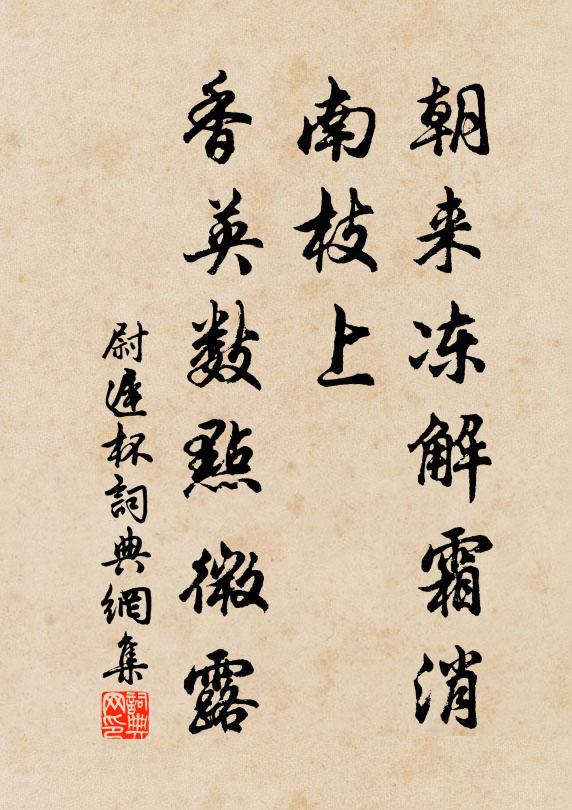 朝来冻解霜消
南枝上
香英数點微露
尉遲杯詞典網集
詞典网印